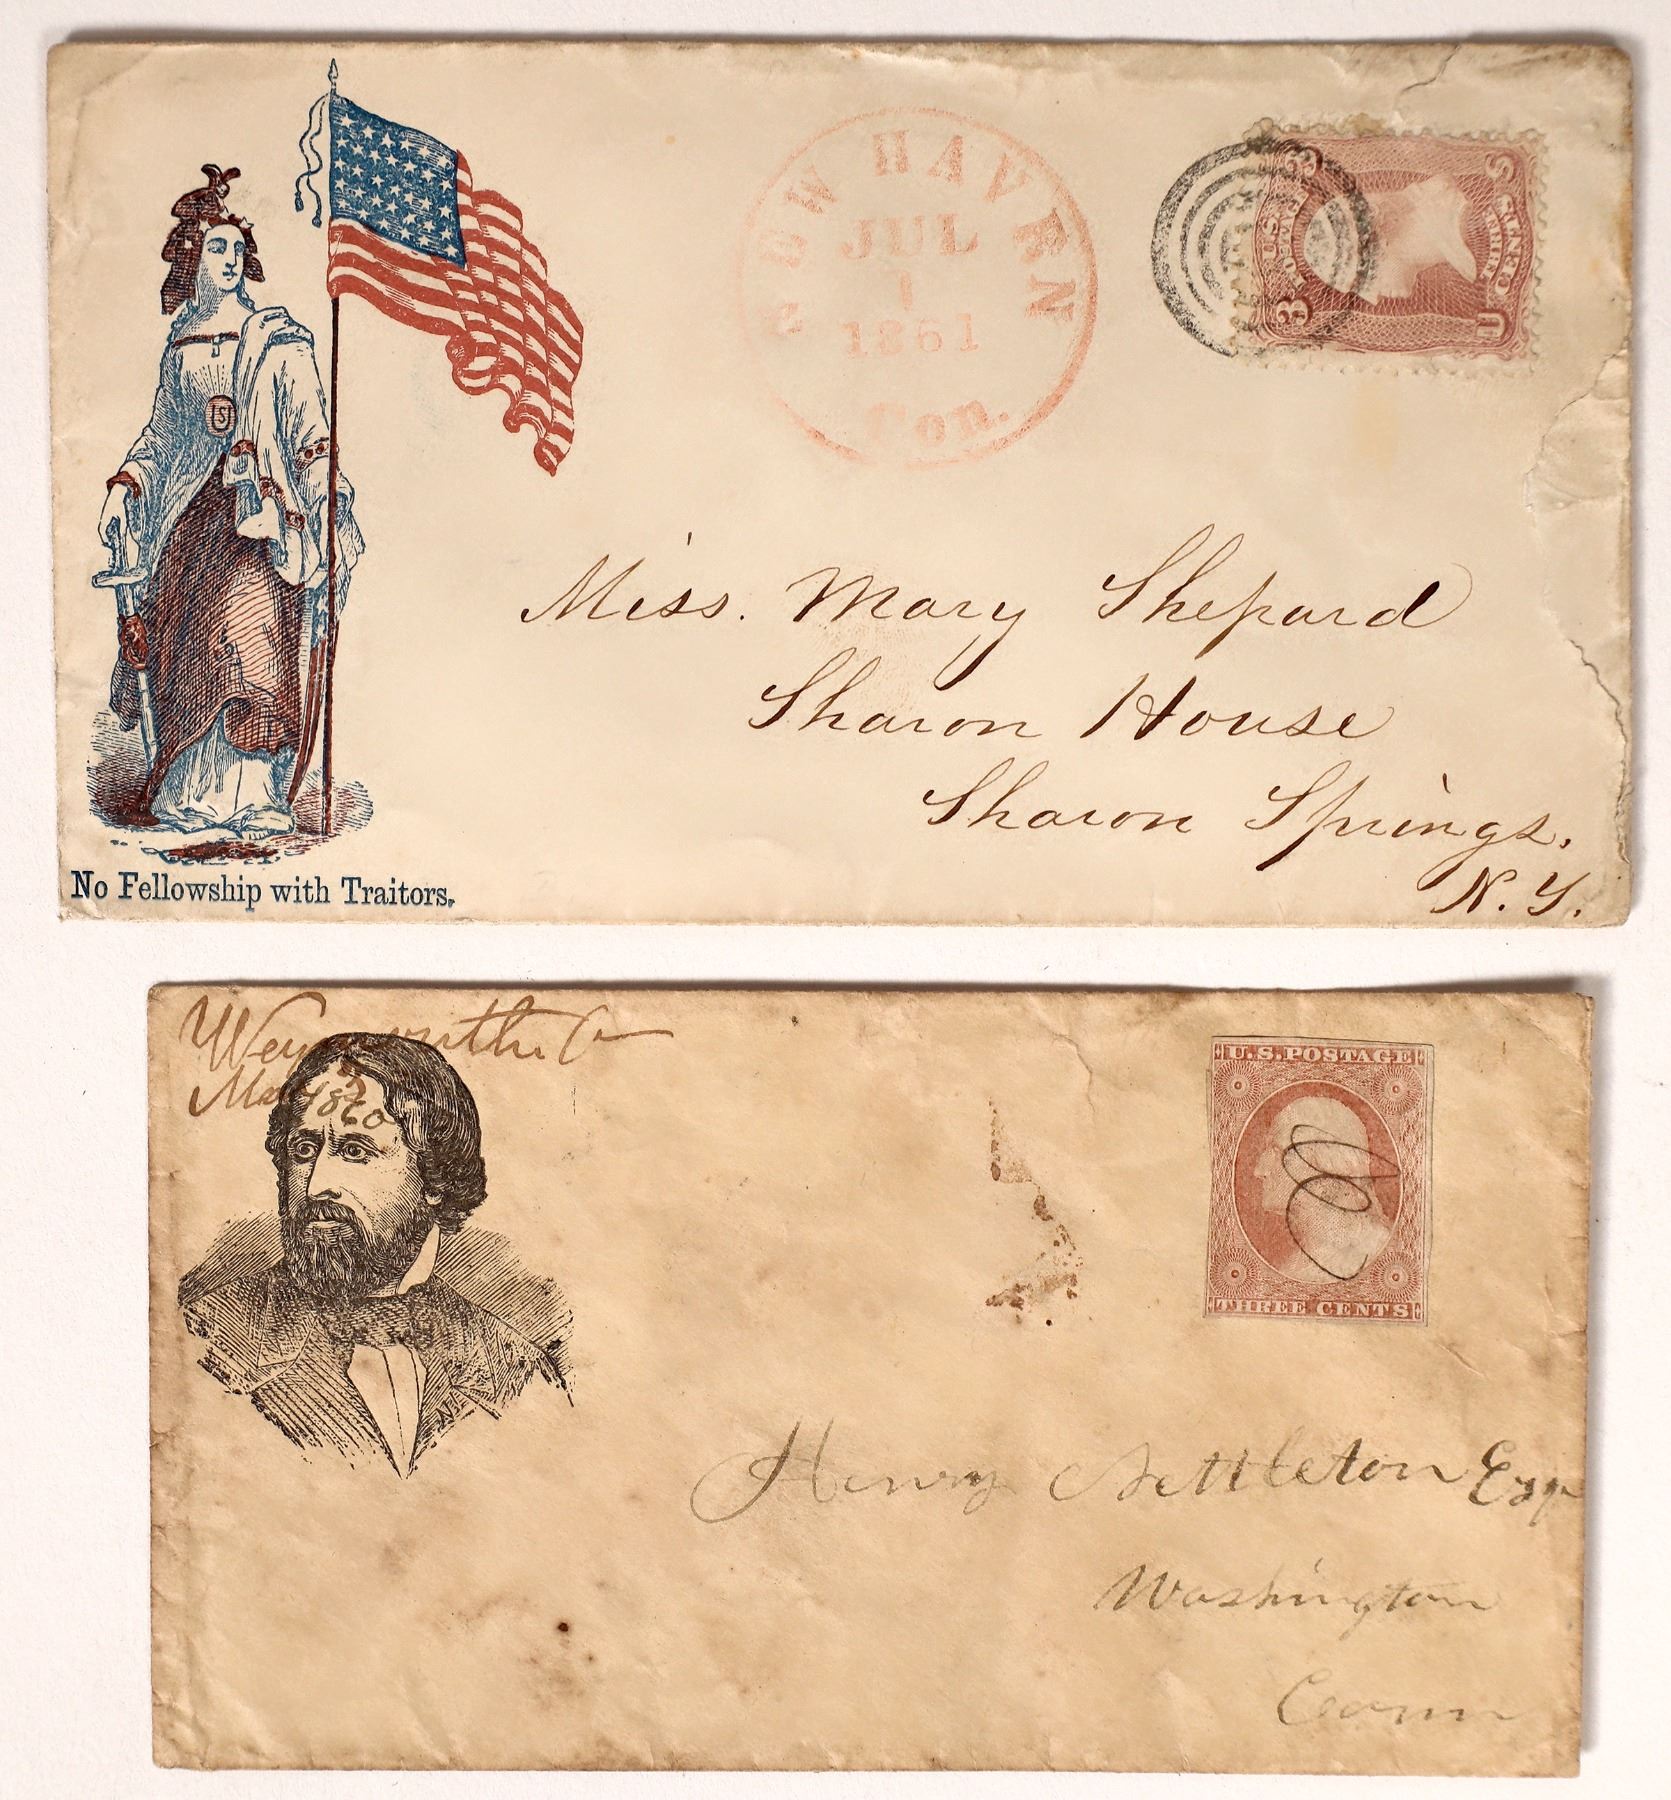 NEW HAVEN
JUL
1
1861
Con.
U.S. POSTAGE
3 3
THREE CENTS
U S
US
No Fellowship with Traitors.
Miss. Mary Shepard
Sharon House
Sharon Springs,
N. Y.
1860
U.S. POSTAGE
THREE CENTS
Henry Nettleton Esq
Washington
Conn